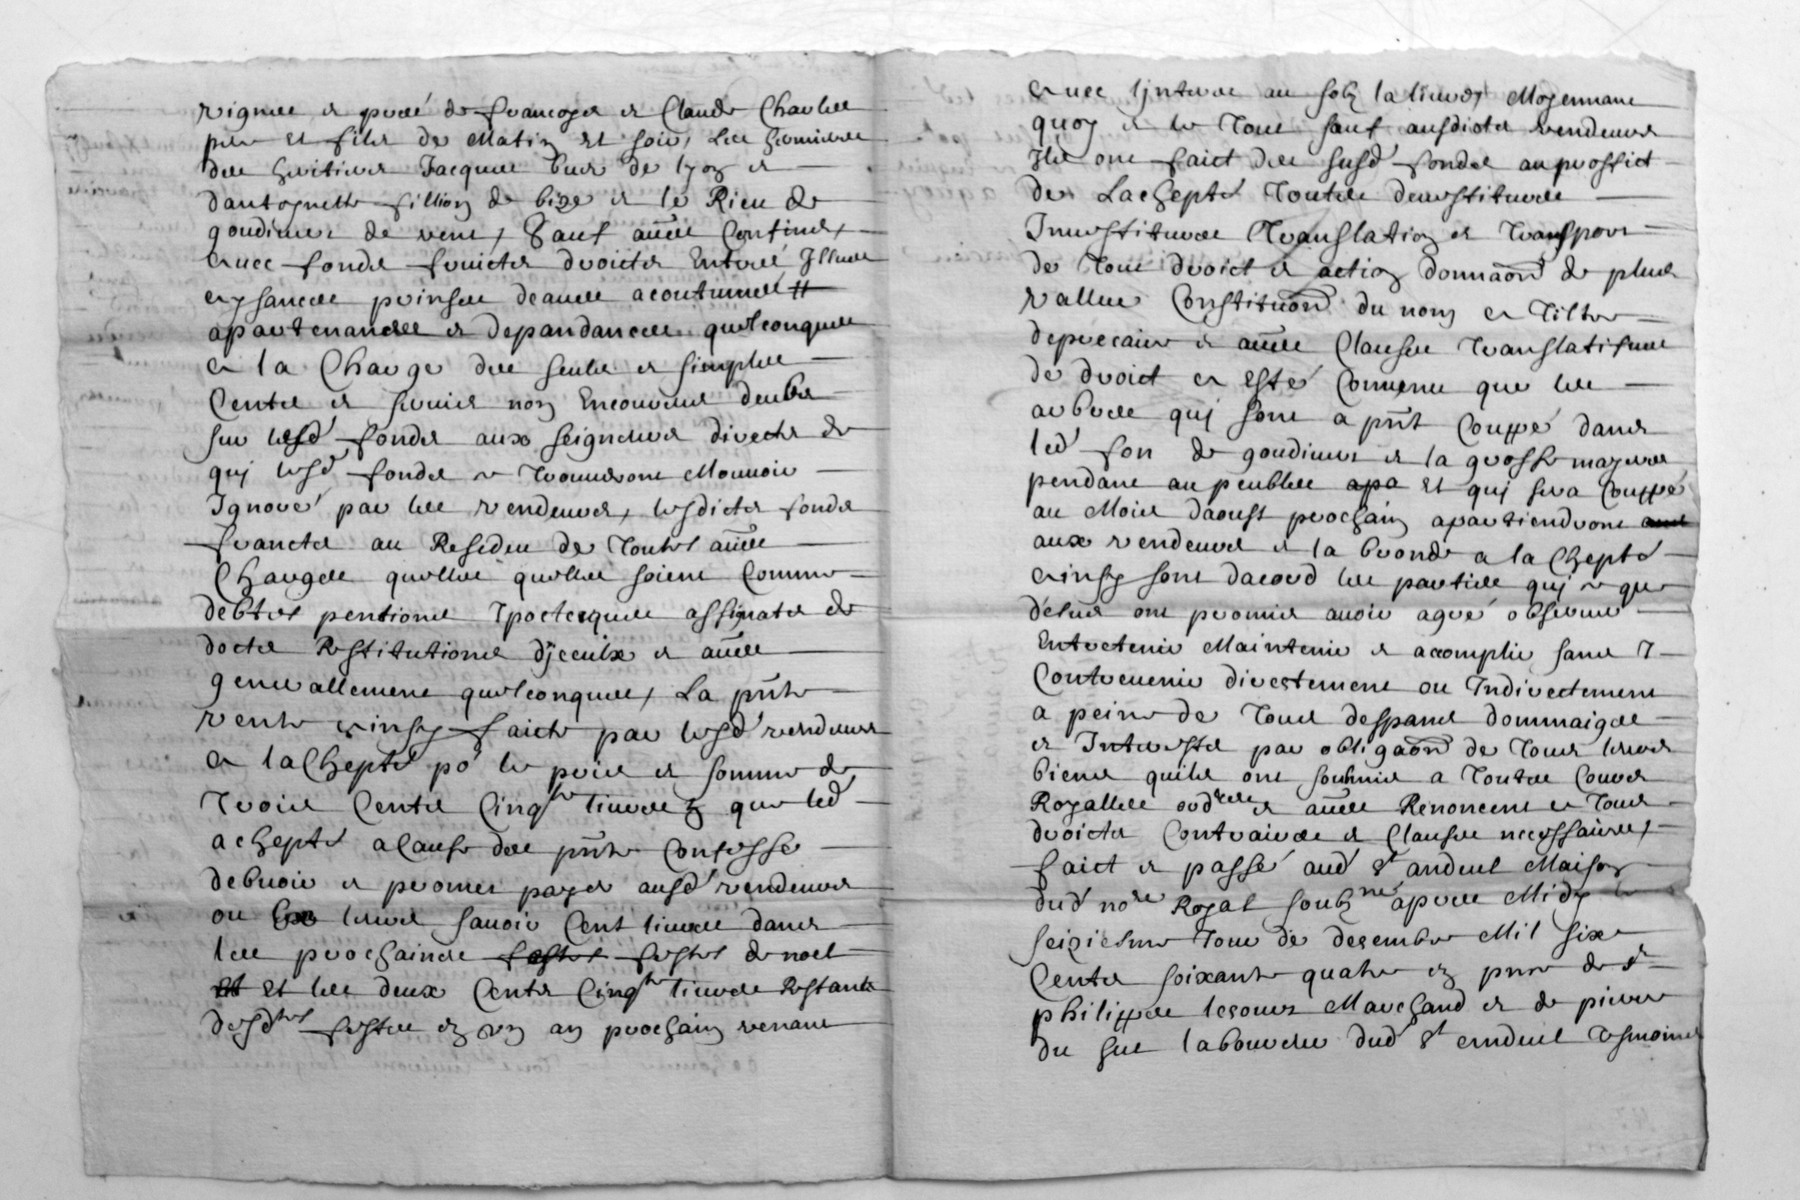 vignes et prés de francoys et Claude Charles
pere et filz de Matin et soir, Les
des heritiers Jacques de lyon et
dantoynette fillion de bize et le Rieu de
goudimes de vent, Sauf aues Confins,
avec fonds fruicts droicts Entrés Yssues
aysances prinses deaues acoutumes
apartenances et depandances quelconques
a la Charge des seuls et simples
Cents et servis non Encourus deubs
sur lesd fonds aux seigneurs directs de
quj lesd fonds se trouveront Mouvoir
Ignoré par les vendeurs, lesdicts fonds
francts au Residu de toutes aues
Charges quelles quelles soient Comme
debtes pentions Ypotecques assignats de
docts Restitutions djceulx et aues
generallement quelconques, La pnte
vente ainsy faicte par lesd vendeurs
a lachepté po le pris et somme de
trois Cents Cinqte livres que led
achepté a Cause des pnte Confesse
debvoir et promet payer ausd vendeurs
ou leurs savoir Cent livres dans
les prochaines festes festes de noel
Et Et les deux Cents Cinqte livres Restants
desdtes festes en un an prochain venant
avec Ljnterest au solz la livre, Moyennant
quoy et le tout sauf ausdicts vendeurs
Ylz ont faict des susd fonds au proffict
de Lachepté toutes devestitures
Investitures translation et transport
de tout droict et action donnaon de plus
vallue Constituon du nom et tiltre
deprecaire et aues Clauses translatifves
de droict et Esté Convenu que les
arbres quj sont a pnt Couppé dans
led fon de goudimes et la grosse mayere
pendant au peubles apa Et quj sera Couppé
au Mois daoust prochain apartiendront
aux vendeurs et la bronde a la Chepté
ainsy sont dacord les parties quj se que
dessus ont promis avoir agré observer
Entretenir Maintenir et acomplir sans Y
Contrevenir directement ou Indirectement
a peine de tous despans dommaiges
et Interests par obligaon de tous leurs
biens quilz ont soubmis a toutes Cours
Royalles ordres et aues Renoncent a tous
droicts Contraires et Clauses necessaires,
faict et passé aud St andeul Maison
dud nore Royal soubzné apres Midy le
seiziesme Jour de decembre Mil six
Cents soixante quatre en pnce de sr
philippes lescour Marchand et de pierre
du sut laboureur dud St andeul tesmoins